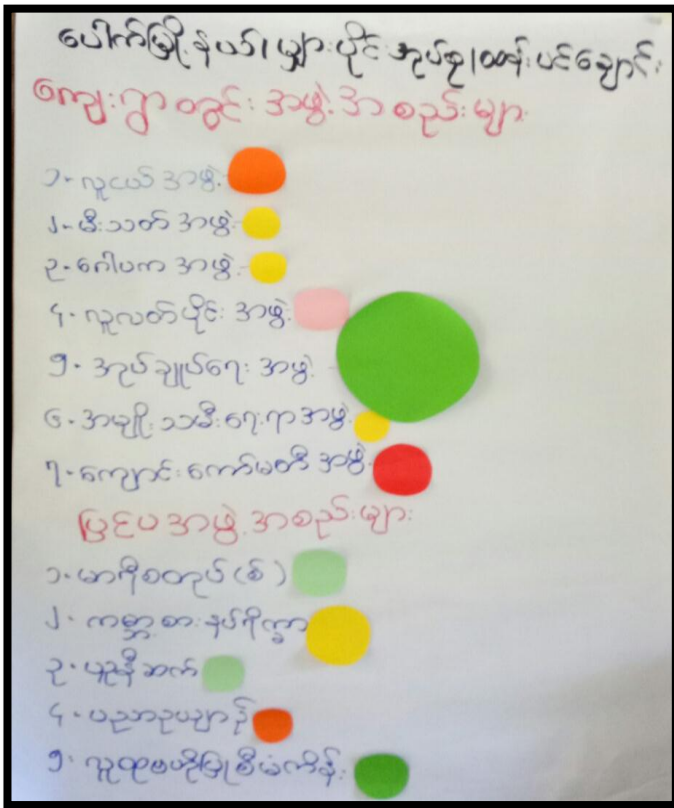 ပေါက်မြို့နယ်၊ မျှားပိုင်းအုပ်စု၊ ထန်းပင်ချောင်း
ကျေးရွာတွင်း အဖွဲ့အစည်းများ
၁- လူငယ် အဖွဲ့
၂- မီးသတ် အဖွဲ့
၃- ဂေါပက အဖွဲ့
၄- လူလတ်ပိုင်း အဖွဲ့
၅- အုပ်ချုပ်ရေး အဖွဲ့
၆- အမျိုးသမီးရေးရာအဖွဲ့
၇- ကျောင်းကော်မတီ အဖွဲ့
ပြင်ပအဖွဲ့အစည်းများ
၁- မာရီစတုပ် (စ်)
၂- ကမ္ဘာ့စားနပ်ရိက္ခာ
၃- ယူနီဆက်
၄- ပညာဥယျာဉ်
၅- လူထုဗဟိုပြုစီမံကိန်း